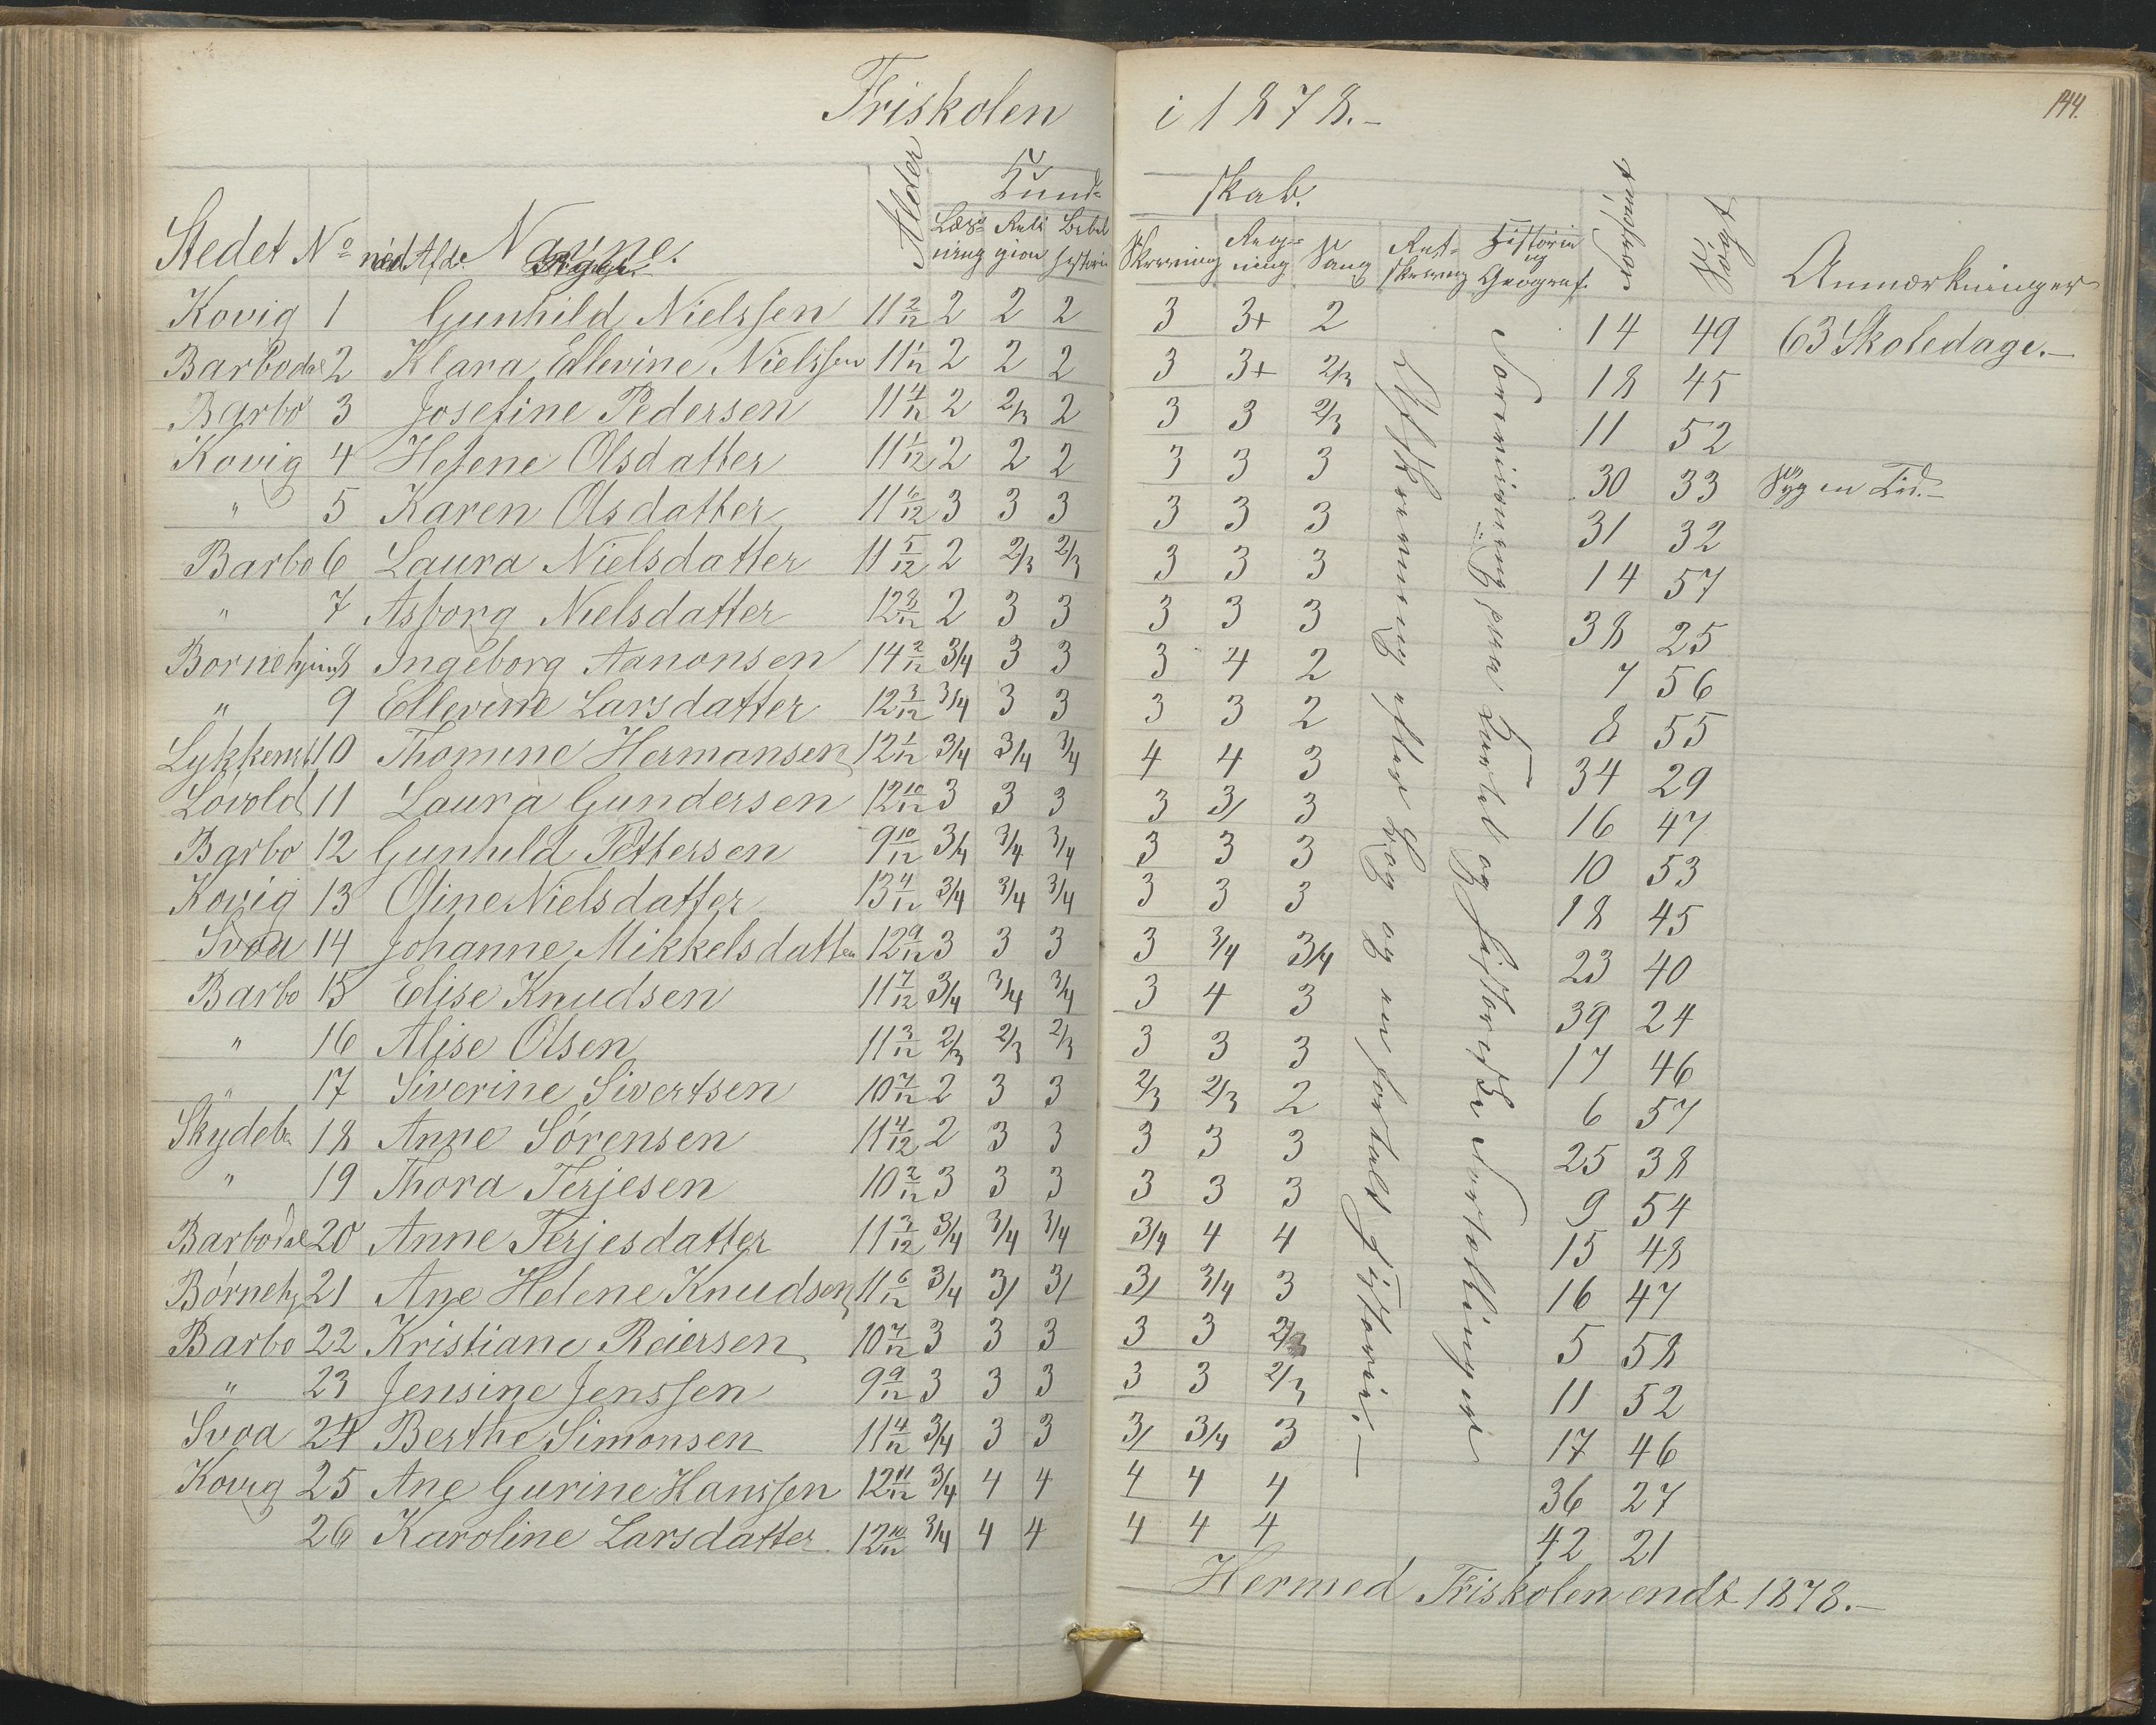 Friskolen i 1878.-
144.
Kund= skab.
Stedet No ned. Afd. Navne. Alder Læs=ning Reli gion Bibel historie Skrivning Reg=ning Sang Ret=skrivning Historie og Geograf. forsømt Søgt Anmærkninger
Piger.
Kovig 1 Gunhild Nielssen 11 2/12 2 2 2 3 3+ 2 14 49 63 Skoledage.-
Barbodal 2 Klara Edlevine Nielssen 11 1/12 2 2 2 3 3+ 2/3 18 45
Barbo 3 Josefine Pedersen 11 4/12 2 2/3 2 3 3 2/3 11 52
Kovig 4 Helene Olsdatter 11 1/12 2 2 2 3 3 3 30 33 Syg en Tid.-
" 5 Karen Olsdatter 11 6/12 3 3 3 3 3 3 31 32
Barbo 6 Laura Nielsdatter 11 5/12 2 2/3 2/3 3 3 3 14 57
" 7 Asborg Nielsdatter 12 8/12 2 3 3 3 3 3 38 25
Bornehjem 8 Ingeborg Aanonsen 14 2/12 3/4 3 3 3 4 2 7 56
" 9 Ellevine Larsdatter 12 3/12 3/4 3 3 3 3 2 8 55
Lykkensb. 10 Thomine Hermansen 12 1/12 3/4 3/4 3/4 4 4 3 34 29
Lovold 11 Laura Gundersen 12 10/12 3 3 3 3 3/ 3 16 47
Barbo 12 Gunhild Pettersen 9 10/12 3/4 3/4 3/4 3 3 3 10 53
Kovig 13 Oline Nielsdatter 13 4/12 3/4 3/4 3/4 3 3 3 18 45
Svoa 14 Johanne Mikkelsdatter 12 9/12 3 3 3 3 3/4 3/4 23 40
Barbo 15 Elise Knudsen 11 7/12 3/4 3/4 3/4 3 4 3 39 24
" 16 Alise Olsen 11 3/12 2/3 2/3 2/3 3 3 3 17 46
" 17 Siverine Sivertsen 10 7/12 2 3 3 2/3 2/3 2 6 57
Skydeb. 18 Anne Sørensen 11 4/12 2 3 3 3 3 3 25 38
" 19 Thora Terjesen 10 2/12 3 3 3 3 3 3 9 54
Barbodal 20 Anne Terjesdatter 11 3/12 3/4 3/4 3/4 3/4 4 4 15 48
Børneh. 21 Ane Helene Knudsen 11 6/12 3/4 3/ 3/ 3/ 3/4 3 16 47
Barbo 22 Kristiane Reiersen 10 7/12 3 3 3 3 3 2/3 5 58
" 23 Jensine Jenssen 9 9/12 3 3 3 3 3 2/3 11 52
Svoa 24 Berthe Simonsen 11 4/12 3/4 3 3 3/ 3/4 3 17 46
Kovig 25 Ane Gurine Hanssen 12 11/12 3/4 4 4 4 4 4 36 27
26 Karoline Larsdatter. 12 10/12 3/4 4 4 4 4 4 42 21
Afskrivning efter Bog og en fortalt Historie.-
Norveisning paa Kartet og historiske Fortællinger
Hermed Friskolen endt 1878.-